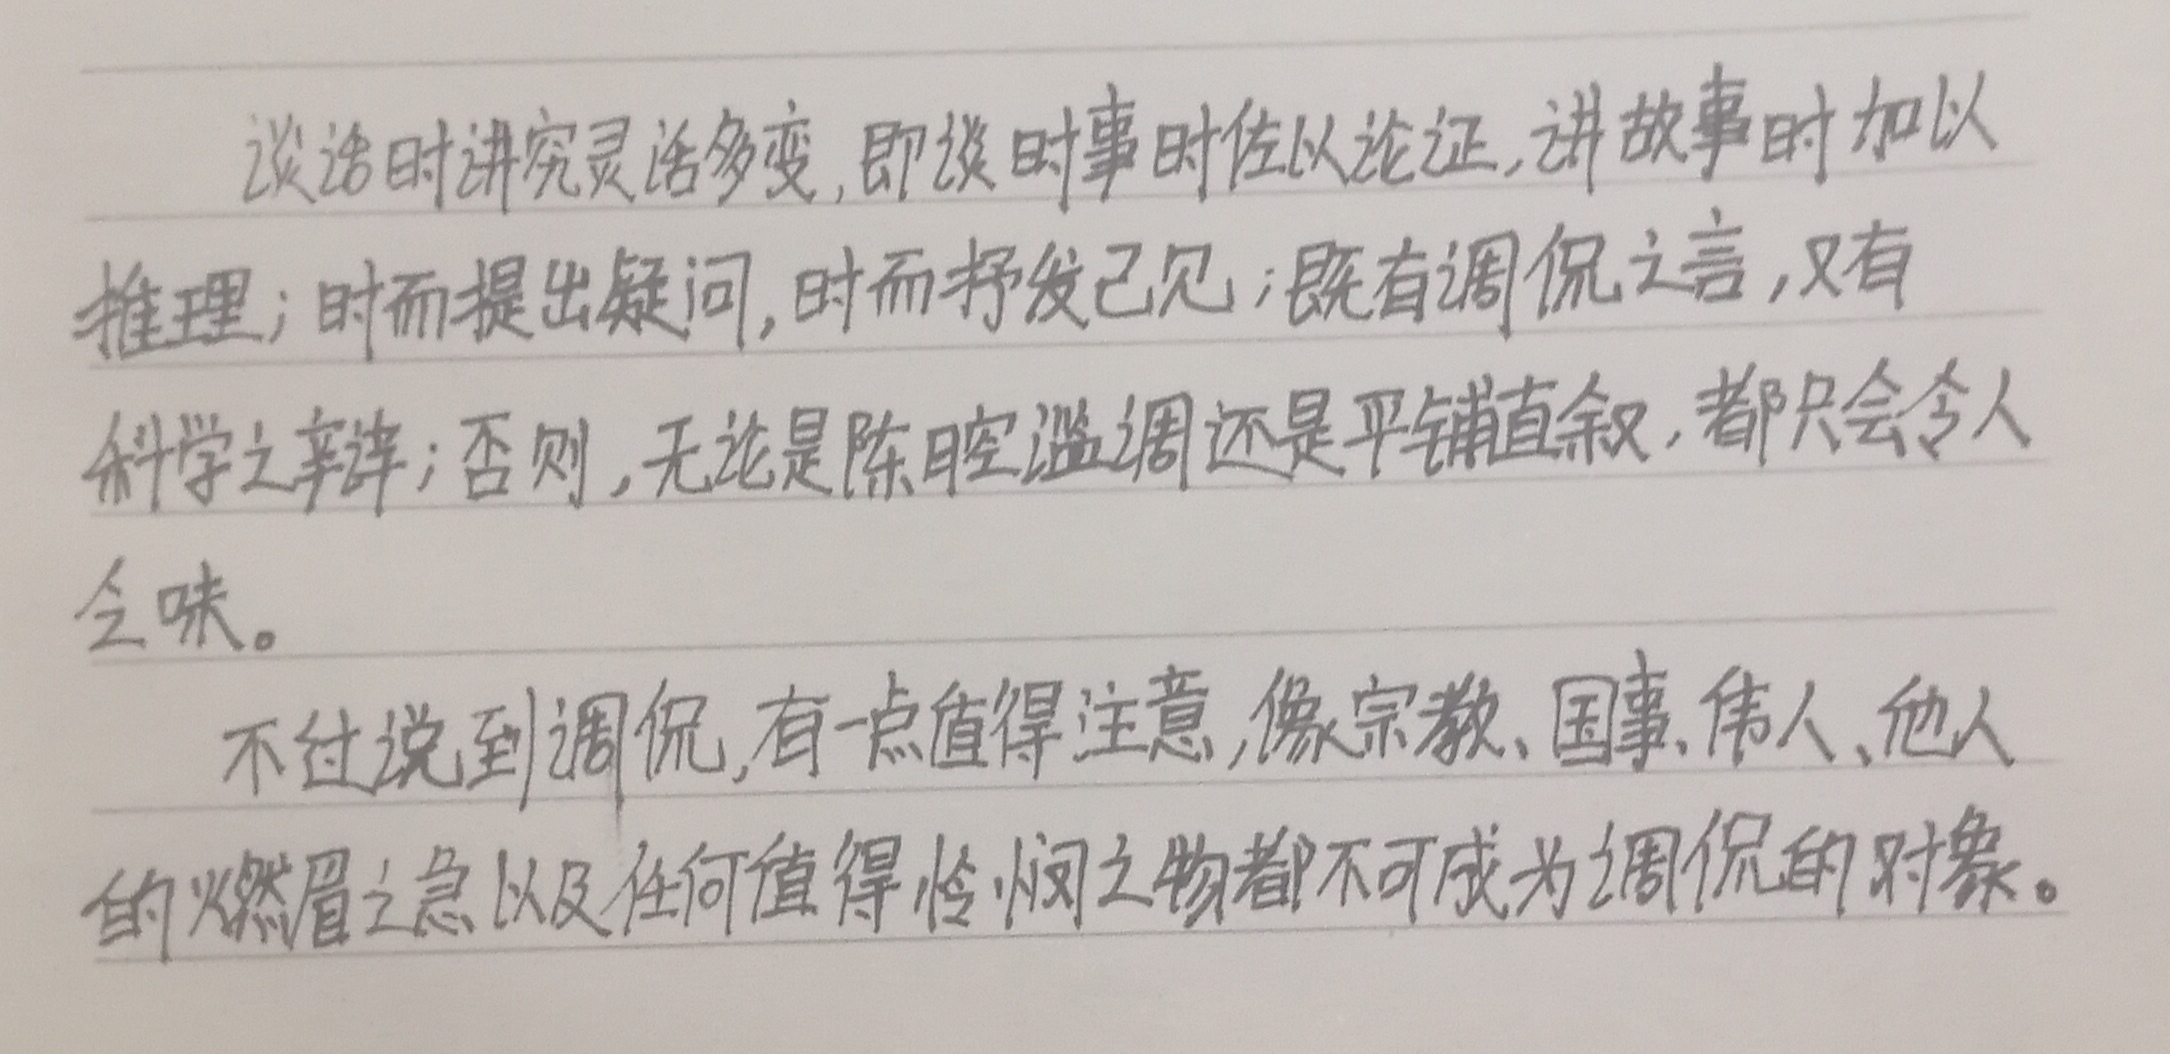 谈话时讲究灵活多变,即谈时事时佐以论证,讲故事时加以
推理;时而提出疑问,时而抒发己见;既有调侃之言,又有
科学之辩;否则,无论是陈腔滥调还是平铺直叙,都只会令人
乏味。
不过说到调侃,有一点值得注意,像宗教、国事、伟人、他人
的燃眉之急以及任何值得怜悯之物都不可成为调侃的对象。